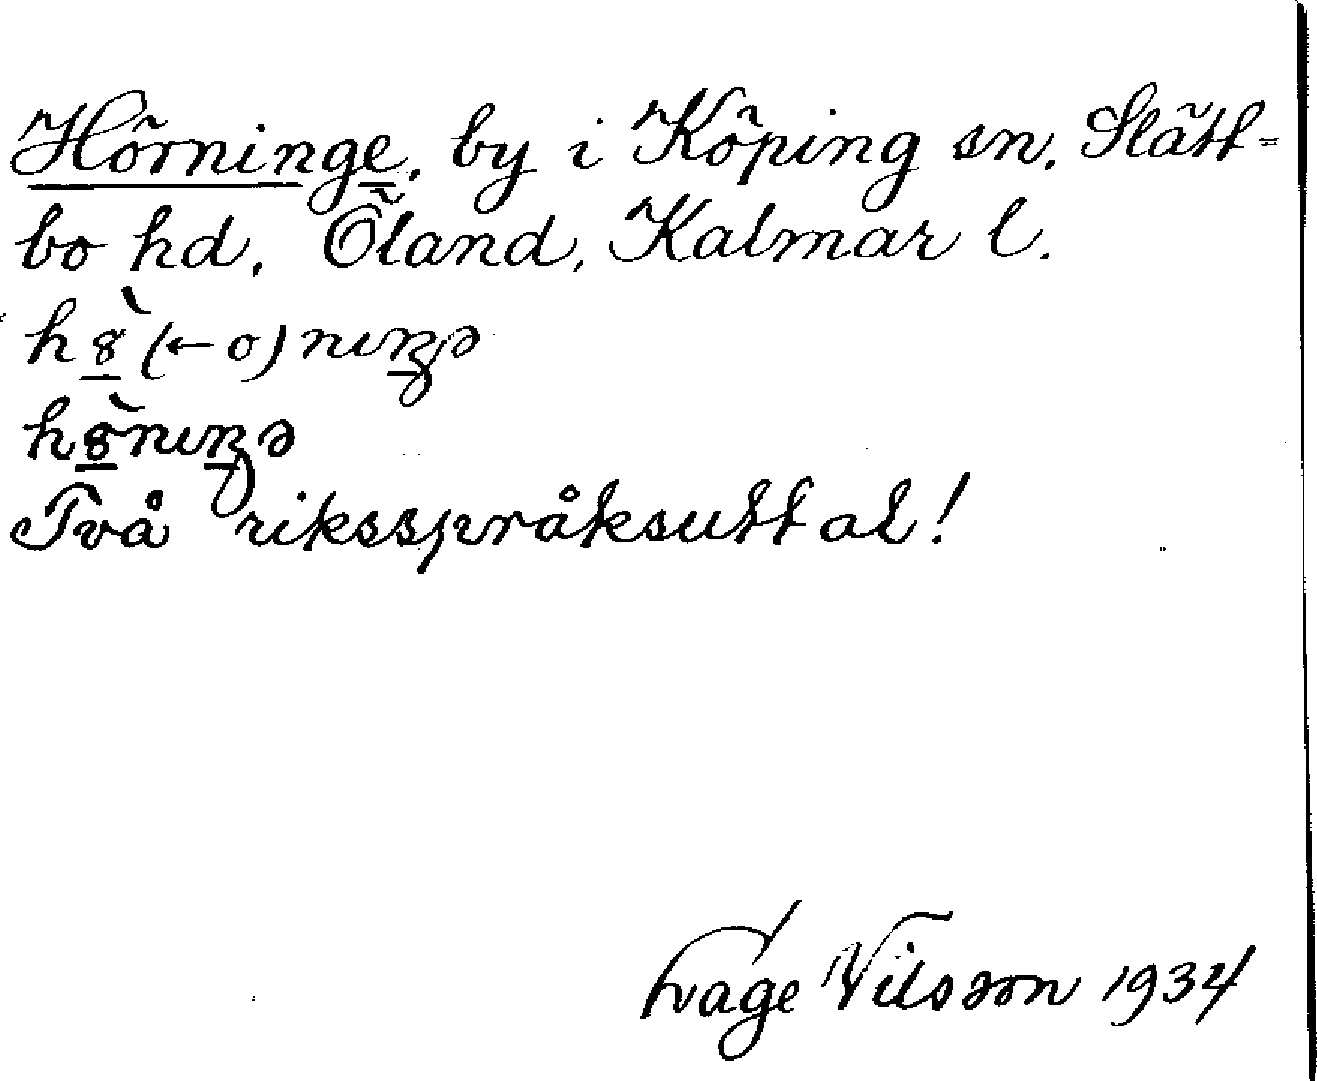 Hörninge, by i Köping sn. Slätt-
bo hd, Öland, Kalmar l.
h8̀(←o)nıŋə
h8̀nıŋə
Två riksspråksuttal!
Nilsson 1934